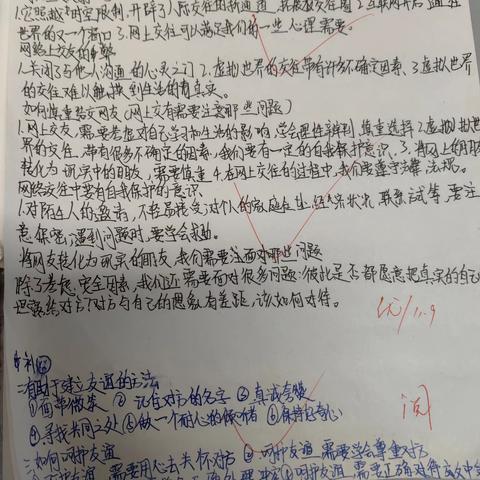 1.它超越了时空限制,开辟了人际交往的新通道,拓展
世界的又一个窗口 3.网上交往可以满足我们的一些心理需要。
网络上交友的弊
1.关闭了与他人沟通的心灵之门 2.虚拟世界的交往带有许多不确定因素、3.虚拟世界
的交往难以触摸到生活的真实。
如何慎重结交网友(网上交友需要注意哪些问题)
1.网上交友,需要考虑对自己学习和生活的影响,学会理性辨别,慎重选择 2.虚拟世
界的交往,带有很多不确定的因素,我们要有一定的自我保护意识、3.将网上的朋友
转化为现实中的朋友,需要慎重 4.在网上交往的过程中,我们要遵守法律、法规。
网络交往中要有自我保护的意识
1.对陌生人的盘诘,不要
意保密;遇到问题时,要学会求助。
将网友转化为现实的朋友,我们需要注面对哪些问题
除了考虑安全因素,我们还需要面对很多问题:彼此是否都愿意把真实的自己
坦露给对方?对方与自己的想象有差距,该如何对待。
优/11.9
补
二:有助于建立友谊的方法
①面带微笑 ②记住对方的名字 ③真诚夸赞
④寻找共同之处 ⑤做一个耐心的倾听者 ⑥保持
阅
三:如何呵护友谊
需要用心去关怀对方 ②呵护友谊,需要学会尊重对方
呵护友谊,需要正确对待